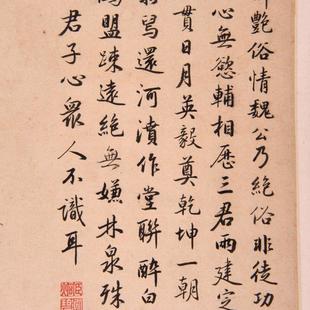 艷俗情魏公乃絕俗非徒功
心無慾輔相歷三君兩建定
貫日月英毅奠乾坤一朝
還河濆作堂聯醉白
盟踈遠絕無嫌林泉殊
君子心衆人不識耳